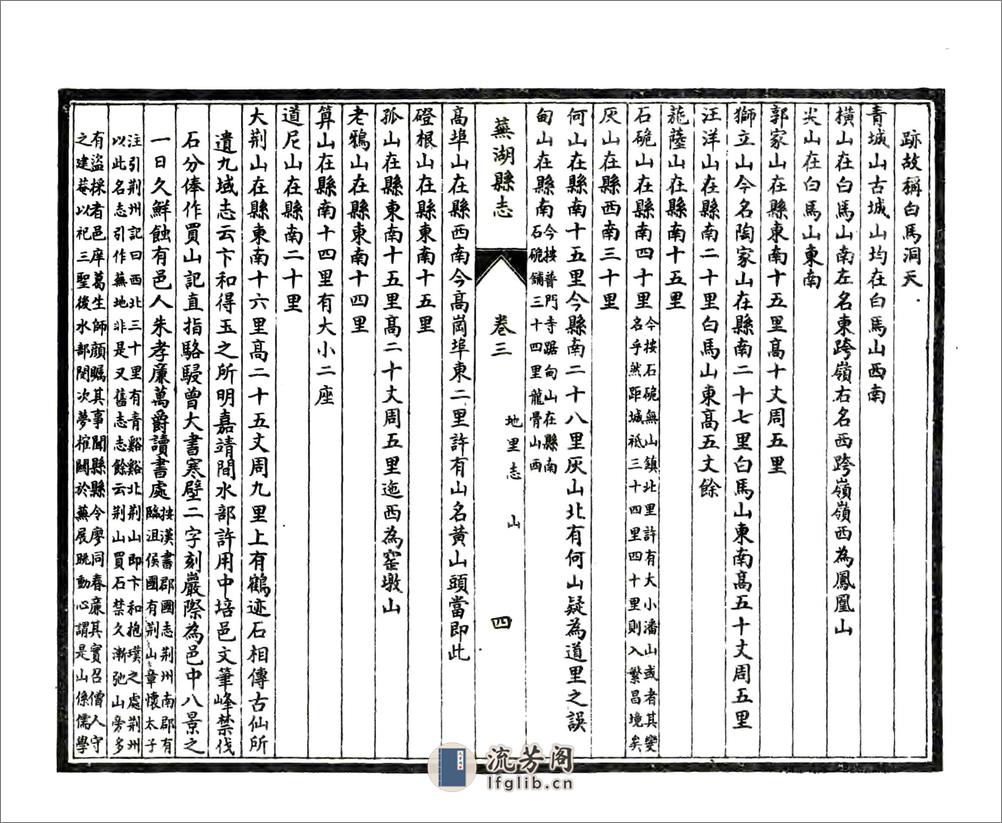 跡故稱白馬洞天
青城山古城山均在白馬山西南
橫山在白馬山南左名東跨嶺右名西跨嶺嶺西為鳳凰山
尖山在白馬山東南
郭家山在縣東南十五里高十丈周五里
獅立山今名陶家山在縣南二十七里白馬山東南高五十丈周五里
汪洋山在縣南二十里白馬山東高五丈餘
龍蓋山在縣南十五里
石硊山在縣南四十里今按石硊無山鎮北里許有大小潘山或者其變
名乎然距城祗三十四里四十里則入繁昌境矣
灰山在縣西南三十里
何山在縣南十五里今縣南二十八里灰山北有何山疑為道里之誤
甸山在縣南今按普門寺踞甸山在縣南
石硊鋪三十四里龍骨山西
蕪湖縣志
卷三
地里志 山
四
高埠山在縣西南今高崗埠東二里許有山名黄山頭當即此
磴根山在縣東南十五里
孤山在縣東南十五里高二十丈周五里迤西為窑墩山
老鴉山在縣東南十四里
算山在縣南十四里有大小二座
道尼山在縣南二十里
大荆山在縣東南十六里高二十五丈周九里上有鶴迹石相傳古仙所
遺九域志云卞和得玉之所明嘉靖間水部許用中培邑文筆峰禁伐
石分俸作買山記直指駱駸曾大書寒壁二字刻巖際為邑中八景之
一日久鮮蝕有邑人朱孝廉萬爵讀書處按漢書郡國志荆州南郡有
臨沮侯國有荆山章懷太子
注引荆州記曰西北三十里有青谿谿北荆山即卞和抱璞之處荆州
以此名志引作蕪地非是又舊志志餘云荆山買石禁久漸弛山旁多
有盜採者邑庠葛生師顔矚其事聞縣縣令廖同春廉其實召僧人守
之建菴以祀三聖後水部閔次夢榷關於蕪展眺動心謂是山係儒學
流芳阁
lfglib.cn